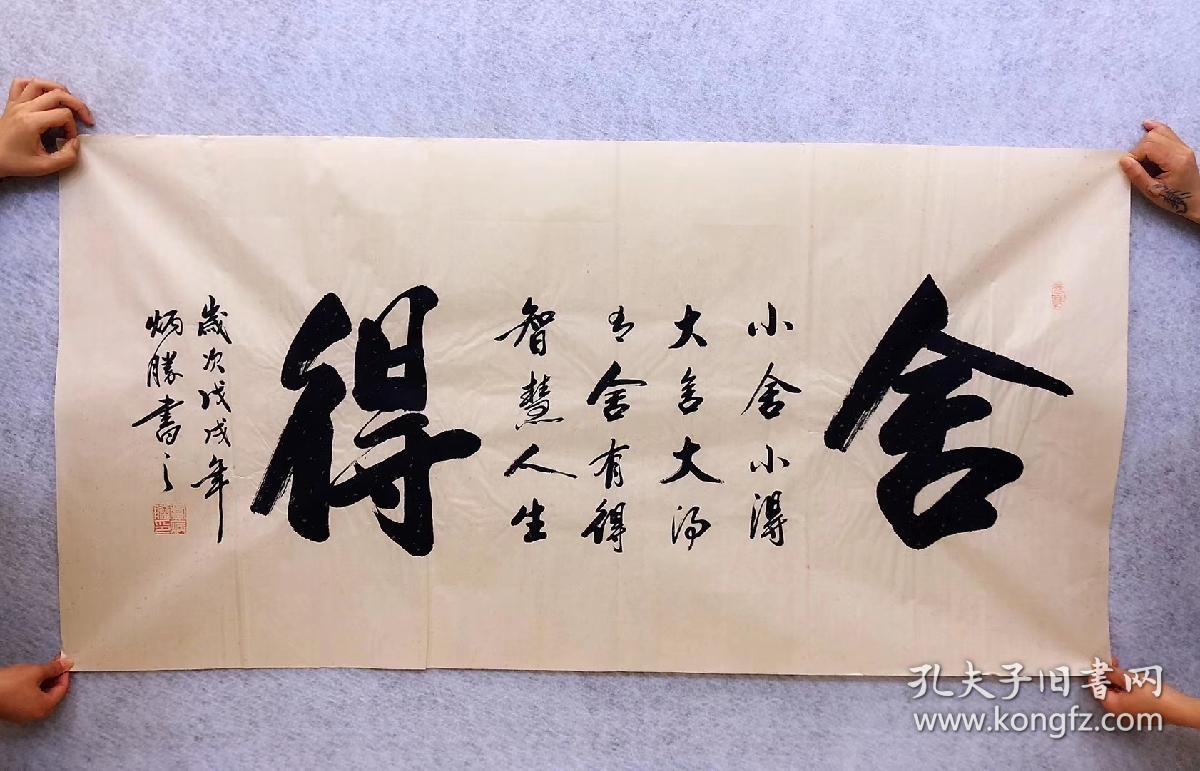 舍
小舍小得
大舍大得
不舍有得
智慧人生
得
歲次戊戌年
炳勝書之
孔夫子旧書网
www.kongfz.com